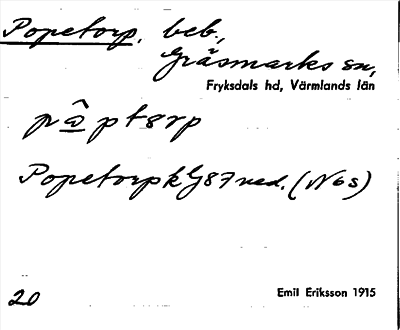 Popetorp, beb.,
Gräsmarks sn,
Fryksdals hd, Värmlands län
Popetorp k G87 ned. (N6s)
20
Emil Eriksson 1915